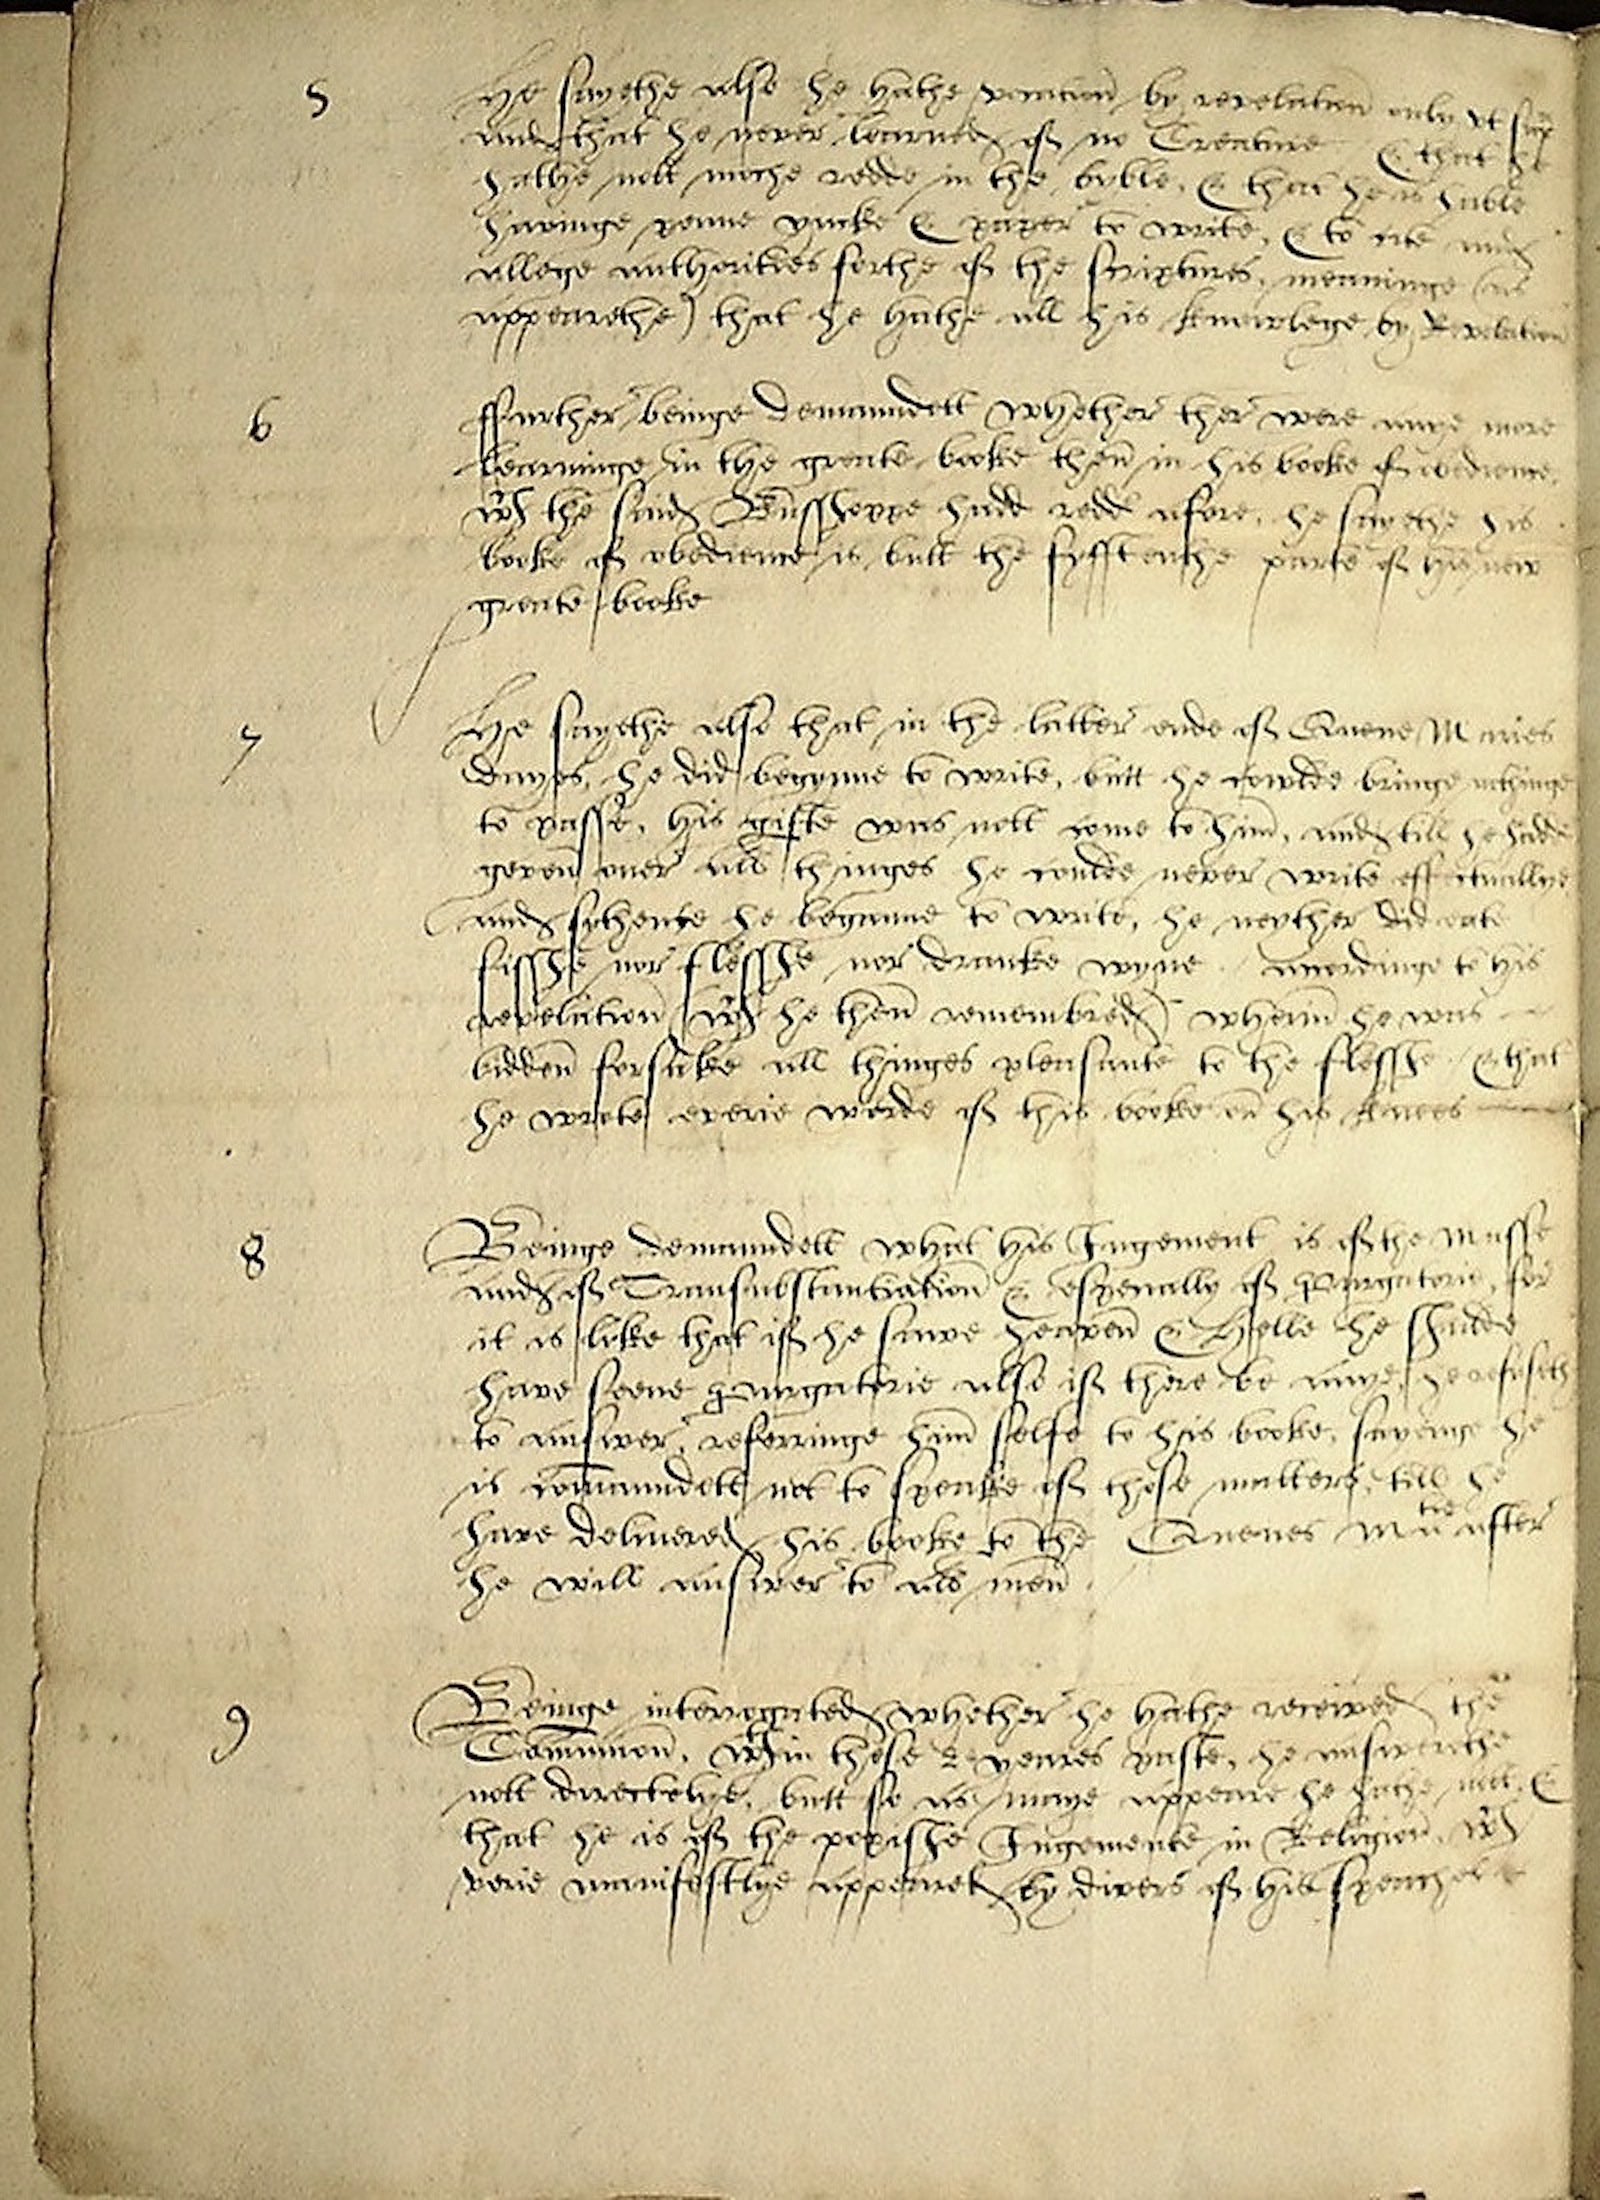 5 He sayethe also he hathe by revelation only ut sup
and that he never learned of no Creature & that he
hathe nott moche redde in the byble, & that he is hable
havinge penne yncke & paper to write, & to cite and
allege authorities forthe of the scriptures, meaninge (as
appearethe) that he hathe all his knowlege by Revelation
6 ffurther beinge demaundett whether ther were anye more
learninge in the greate booke then in his booke of obedience,
wch the said Busshoppe hadd redd afore, he sayethe his
booke of obedience is butt the fyfftenthe parte of his new
greate booke
7 He sayethe also that in the latter ende of Quene Maries
dayes, he did begynne to write, butt he cowlde bringe nothinge
to passe, his gifte was nott come to him, and till he hadde
geven over all thinges he coulde never write effectuallye,
and sythence he beganne to write, he neyther did eate
fisshe nor flesshe nor dranke wyne accordinge to his
revelation (wch he then remembred) wherin he was
bidden forsake all thinges pleasante to the flesshe & that
he wrote everie worde of this booke on his knees
8 Beinge demaundett what his Jugement is of the Masse
and of Transubstantiation & especially of Purgatorie, for
it is like that if he sawe heaven & Helle he shulde
have seene Purgatorie also if there be anye, he refuseth
to answer, referringe him selfe to his booke, sayeinge he
is commaundett not to speake of those matters, till he
have delivered his booke to the Quenes Matie after
he will answer to all men
9 Beinge interrogated whether he hathe received the
Communion, wthin these 2 yeares paste, he answerithe
nott directelye, butt so as maye appeare he hathe nott, &
that he is of the popishe Jugemente in Religion, wch
verie manifestlye appearet by divers of his speaches